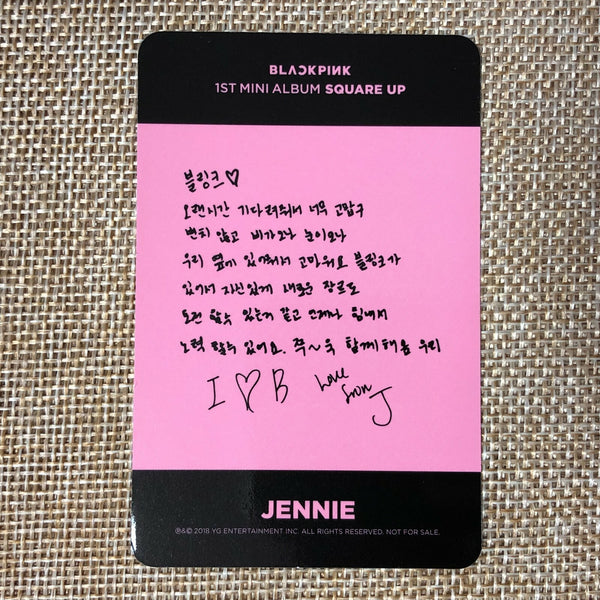 BLACKPINK
1ST MINI ALBUM SQUARE UP
블링크♡
오랜시간 기다려줘서 너무 고맙구
변치 않고 비가오나 눈이오나
우리 옆에 있어줘서 고마워요 블링크가
있어서 자신있게 새로운 장르도
도전 할수 있는거 같고 언제나 힘내서
노력 할수 있어요. 쭈~욱 함께해욤 우리
I ♡ B
Love
from
J
JENNIE
℗&© 2018 YG ENTERTAINMENT INC. ALL RIGHTS RESERVED. NOT FOR SALE.